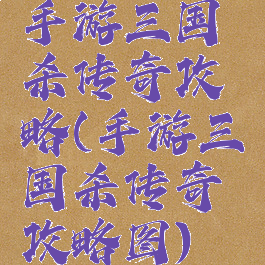 手游三国
杀传奇攻
略(手游三
国杀传奇
攻略图)